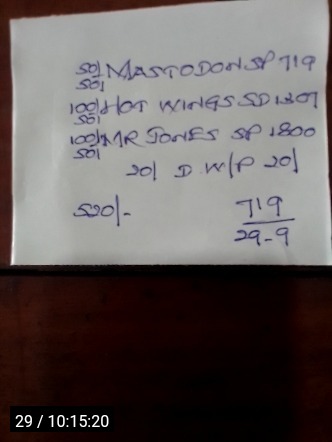 50/ MASTODON SP 719
50/
100/ HOT WINGS SD 1307
50/
100/ MR JONES SP 1800
50/
20/ D.W/P 20/
520/- 719
29-9
29 / 10:15:20